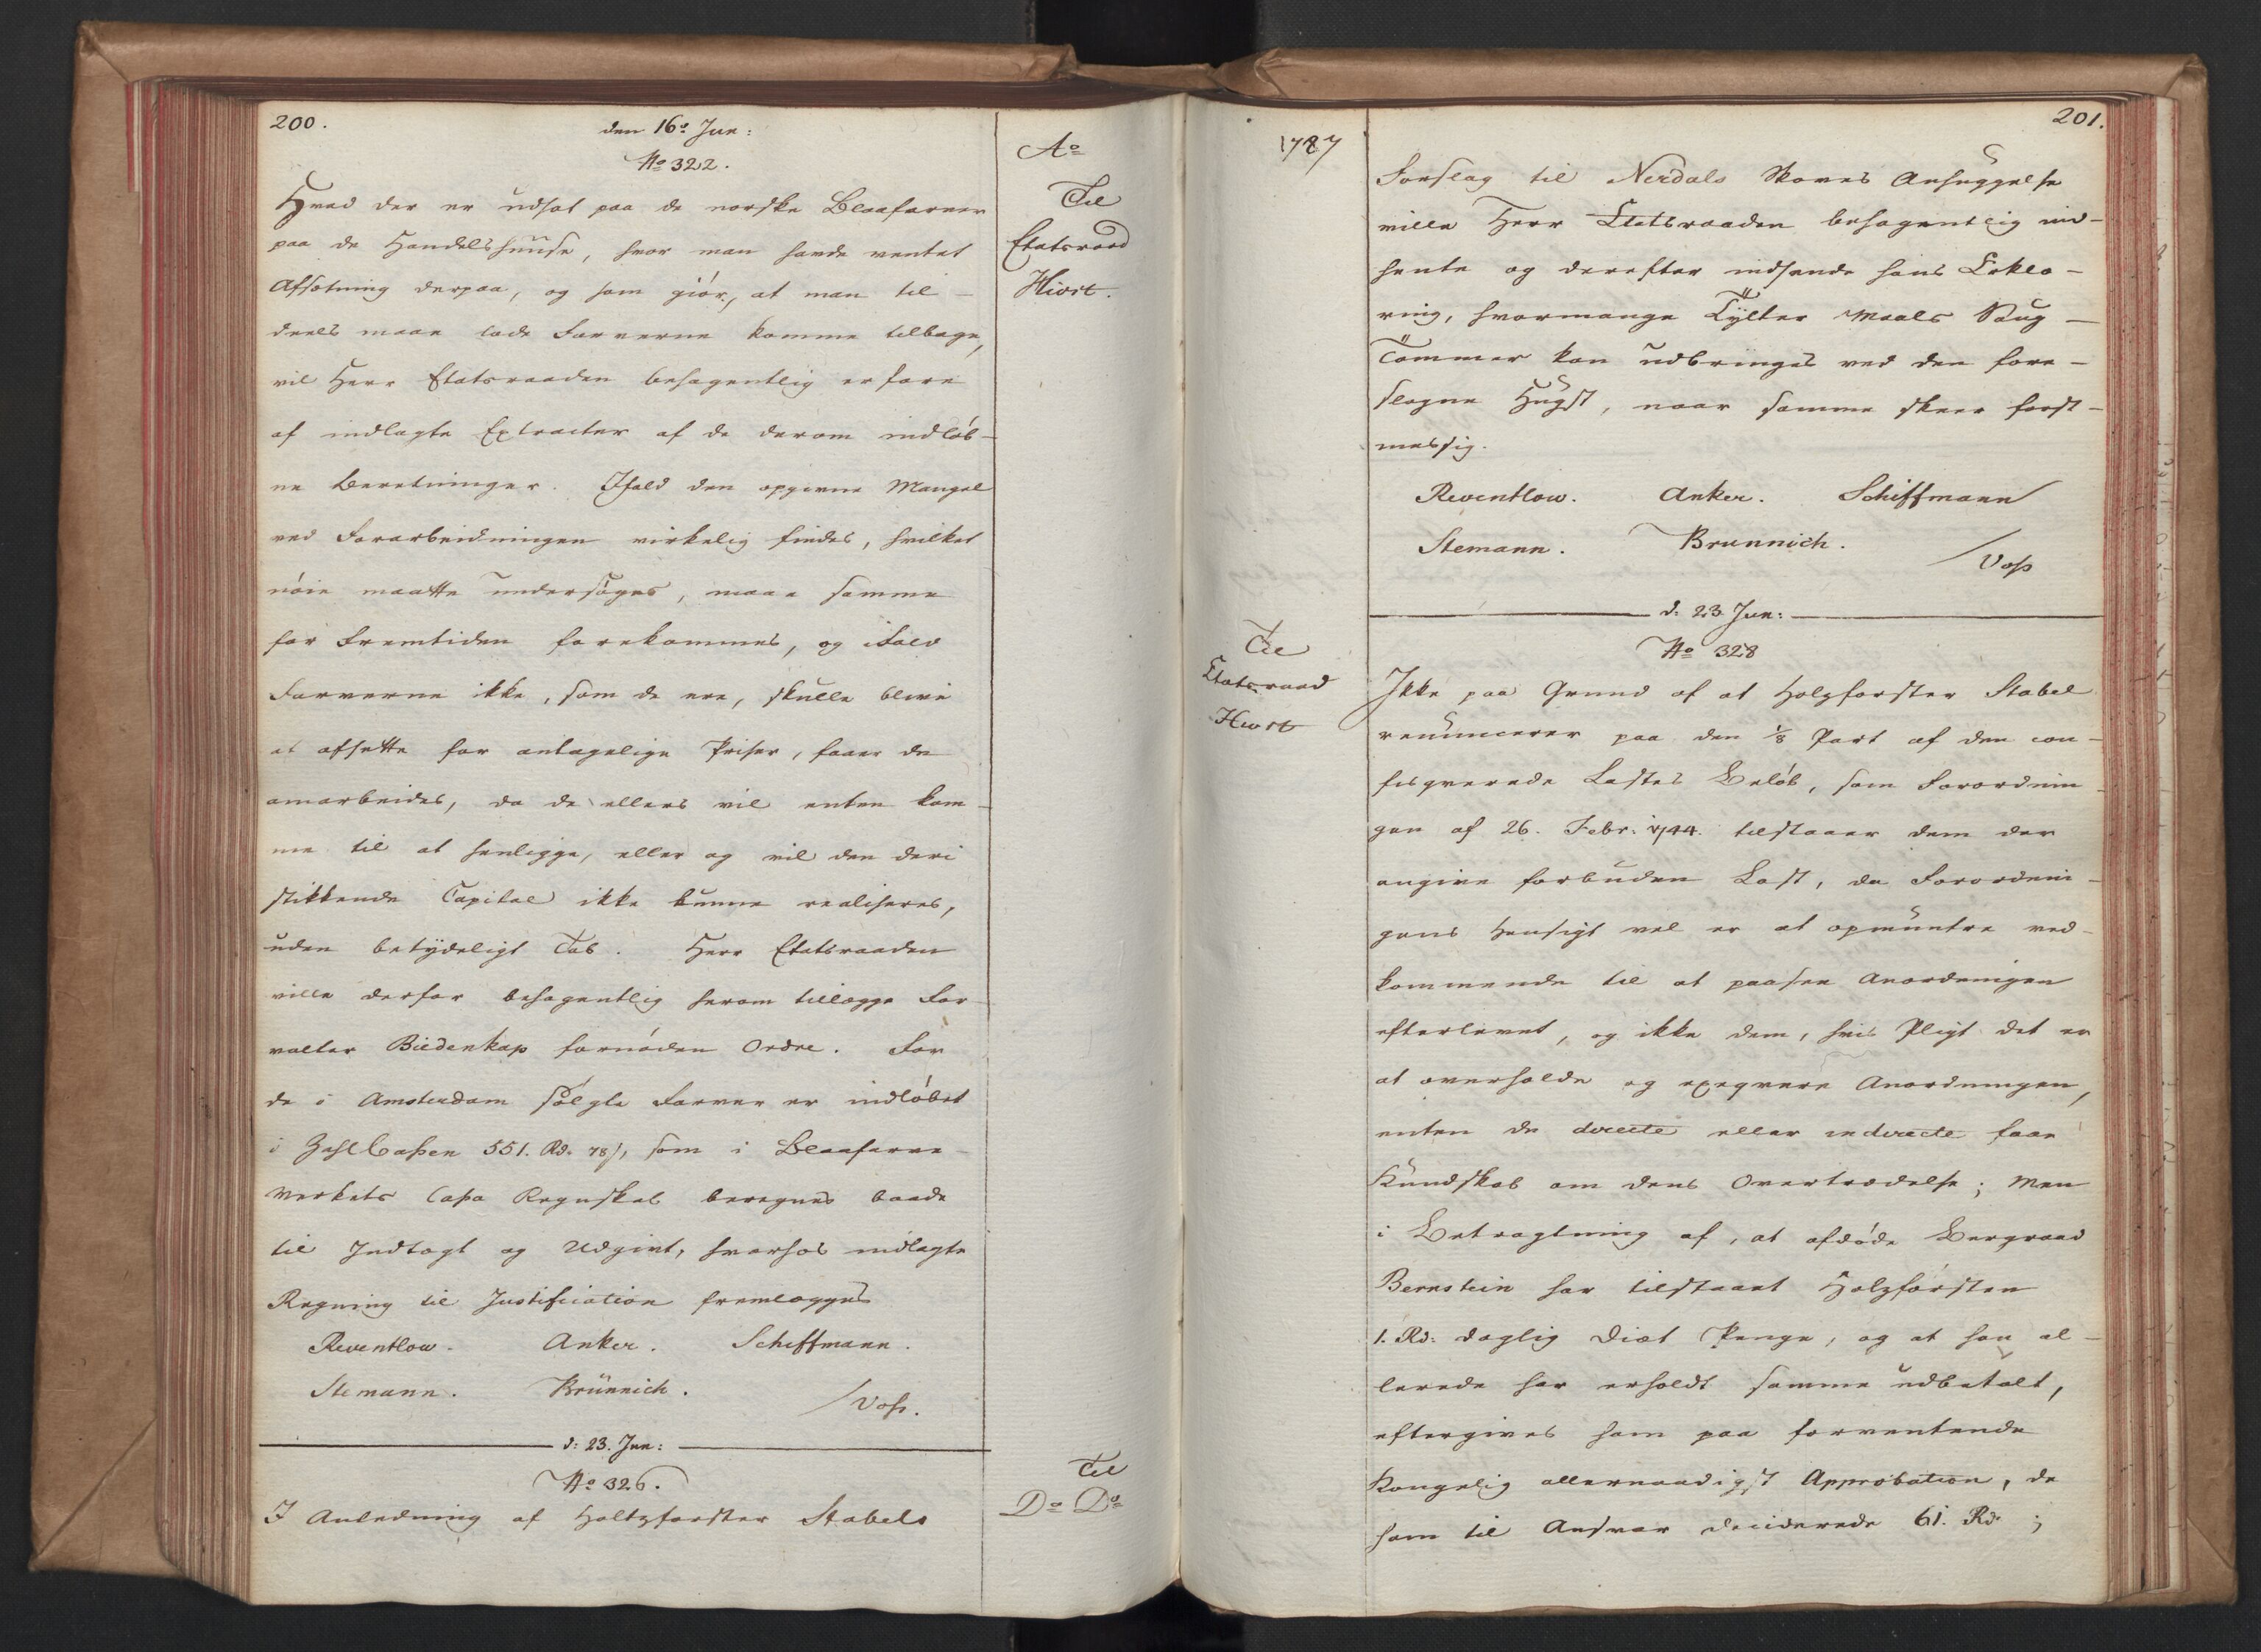 200.
den 16de Jun:
No 322.
Hvad der er udsat paa de norske Blaafarver
paa de Handelshuuse, hvor man havde ventet
Afsætning derpaa, og som giør, at man til-
deels maae lade Farverne komme tilbage,
vil Herr Etatsraaden behagentlig erfare
af indlagte Extracter af de derom indløb-
ne Beretninger. Ifald den opgivne Mangel
ved Forarbeidningen virkelig findes, hvilket
nøie maatte undersøges, maae samme
for Fremtiden forekommes, og ifald
Farverne ikke, som de ere, skulle blive
at afsette for antagelige Priser, faaer de
omarbeides, da de ellers vil enten kom-
me til at henligge, eller og vil den deri
stikkende Capital ikke kunne realiseres,
uden betydeligt Tab. Herr Etatsraaden
ville derfor behagentlig herom tillægge For-
valter Biedenkap fornøden Ordre. For
de i Amsterdam solgte Farver er indløbet
i ZahlCassen 551. Rd. 78 s, som i Blaafarve-
Verkets Cassa Regnskab beregnes baade
til Indtægt og Udgivt, hvorhos indlagte
Regning til Justification fremlægges
Reventlow. Anker. Schiffmann.
Stemann. Brünnich.
/Voss.
d: 23. Jun:
No 326.
I Anledning af Holtzførster Stabels
Ao
Til
Etatsraad
Hiort.
Til
Do Do
1787
Til
Etatsraad
Hiort
201.
Forslag til Nerdals Skoves Anhuggelse
ville Herr Etatsraaden behagentlig ind-
hente og derefter indsende hans Erklæ-
ring, hvormange Tylter Maals Saug-
Tømmer kan udbringes ved den fore-
slagne Hugst, naar samme skeer forst-
messig.
Reventlow. Anker. Schiffmann
Stemann. Brunnich.
/Voss
d: 23 Jun:
No 328
Ikke paa Grund af at Holzførster Stabel
renuncerer paa den 1/8 Part af den con-
fisqverede Lastes Beløb, som Forordnin-
gen af 26. Febr. 1744. tilstaaer dem der
angive forbuden Last, da Forordnin-
gens Hensigt vel er at opmuntre ved-
kommende til at paasee Anordningen
efterlevet, og ikke dem, hvis Pligt det er
at overholde og exeqvere Anordningen,
enten de directe eller indirecte faae
Kundskab om dens Overtrædelse; Men
i Betragtning af, at afdøde Bergraad
Bernstein har tilstaaet Holzførsten
1. Rd: daglig Diæt Penge, og at han al-
lerede har erholdt samme udbetalt,
eftergives ham paa forventende
Kongelig allernaadigst Approbation, de
ham til Ansvar deciderede 61. Rd. ;